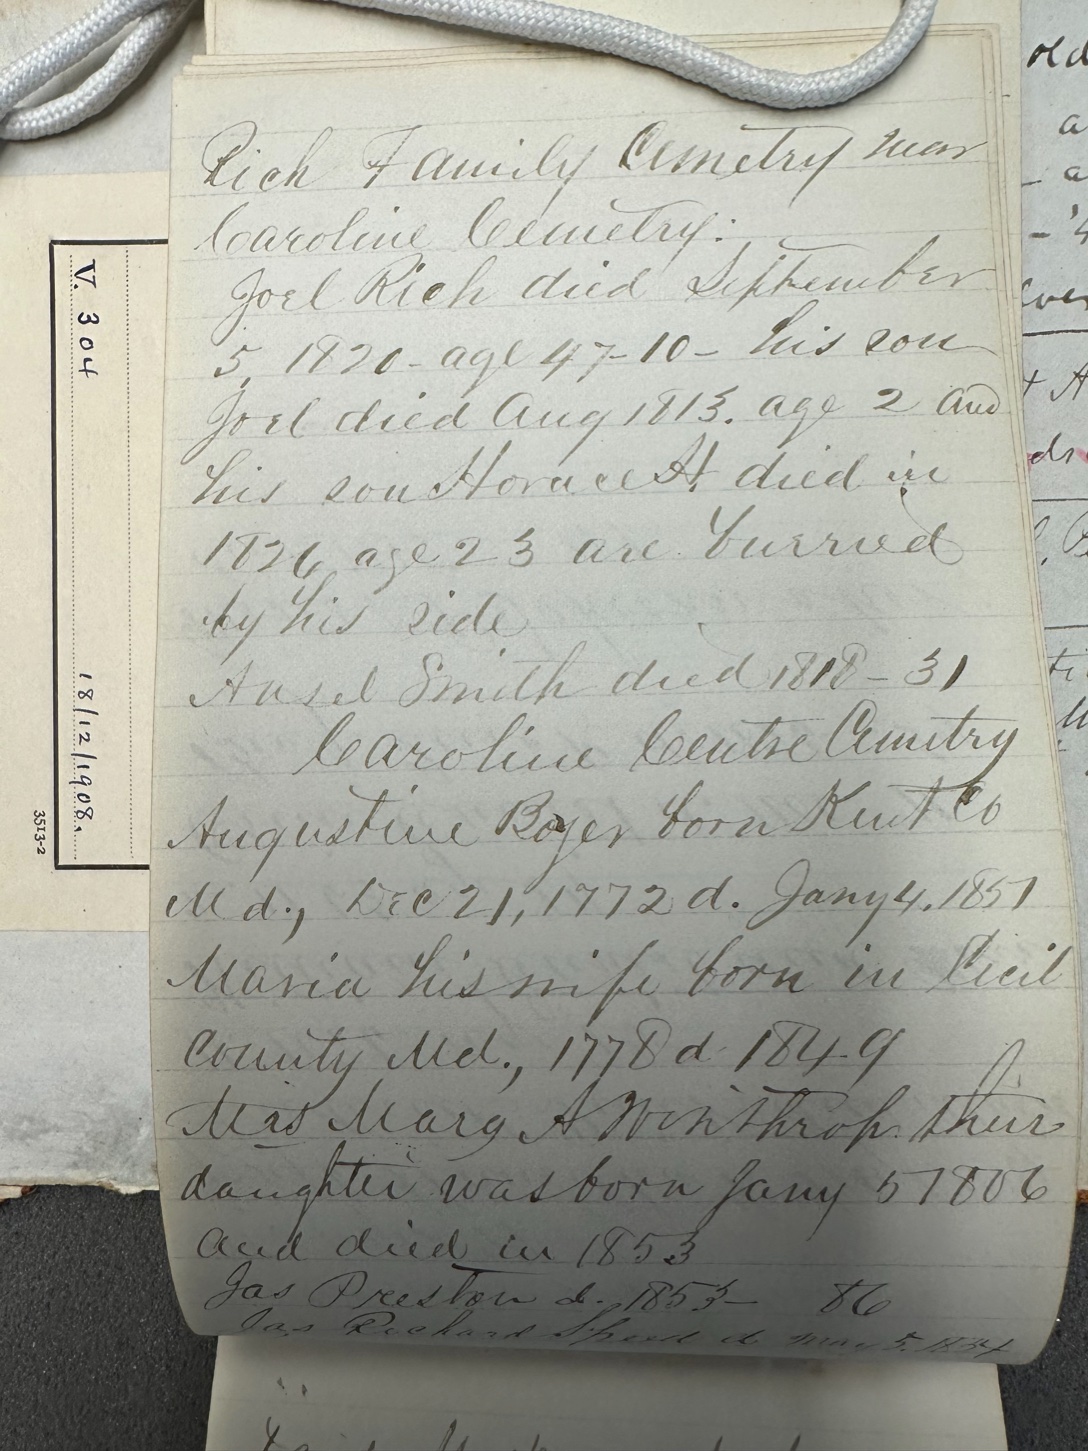 Rich Family Cemetry near
Caroline Cemetry:
Joel Rich died September
5, 1820- age 47-10- his son
Joel died Aug 1813. age 2 and
his son Horace H. died in
1826 age 23 are burried
by his side
Ansel Smith died 1818 - 31
Caroline Centre Cemetry
Augustine Boyer born Kent Co
Md., Dec 21, 1772 d. Jany 4. 1851
Maria his wife born in Cecil
County Md., 1778 d 1849
Mrs Marg A Winthrop their
daughter was born Jany 5 1806
and died in 1853
Jas Preston d. 1853- 86
Jas Richard Speed d May 5. 1854
V. 304
18/12/1908.
3513-2
old
a